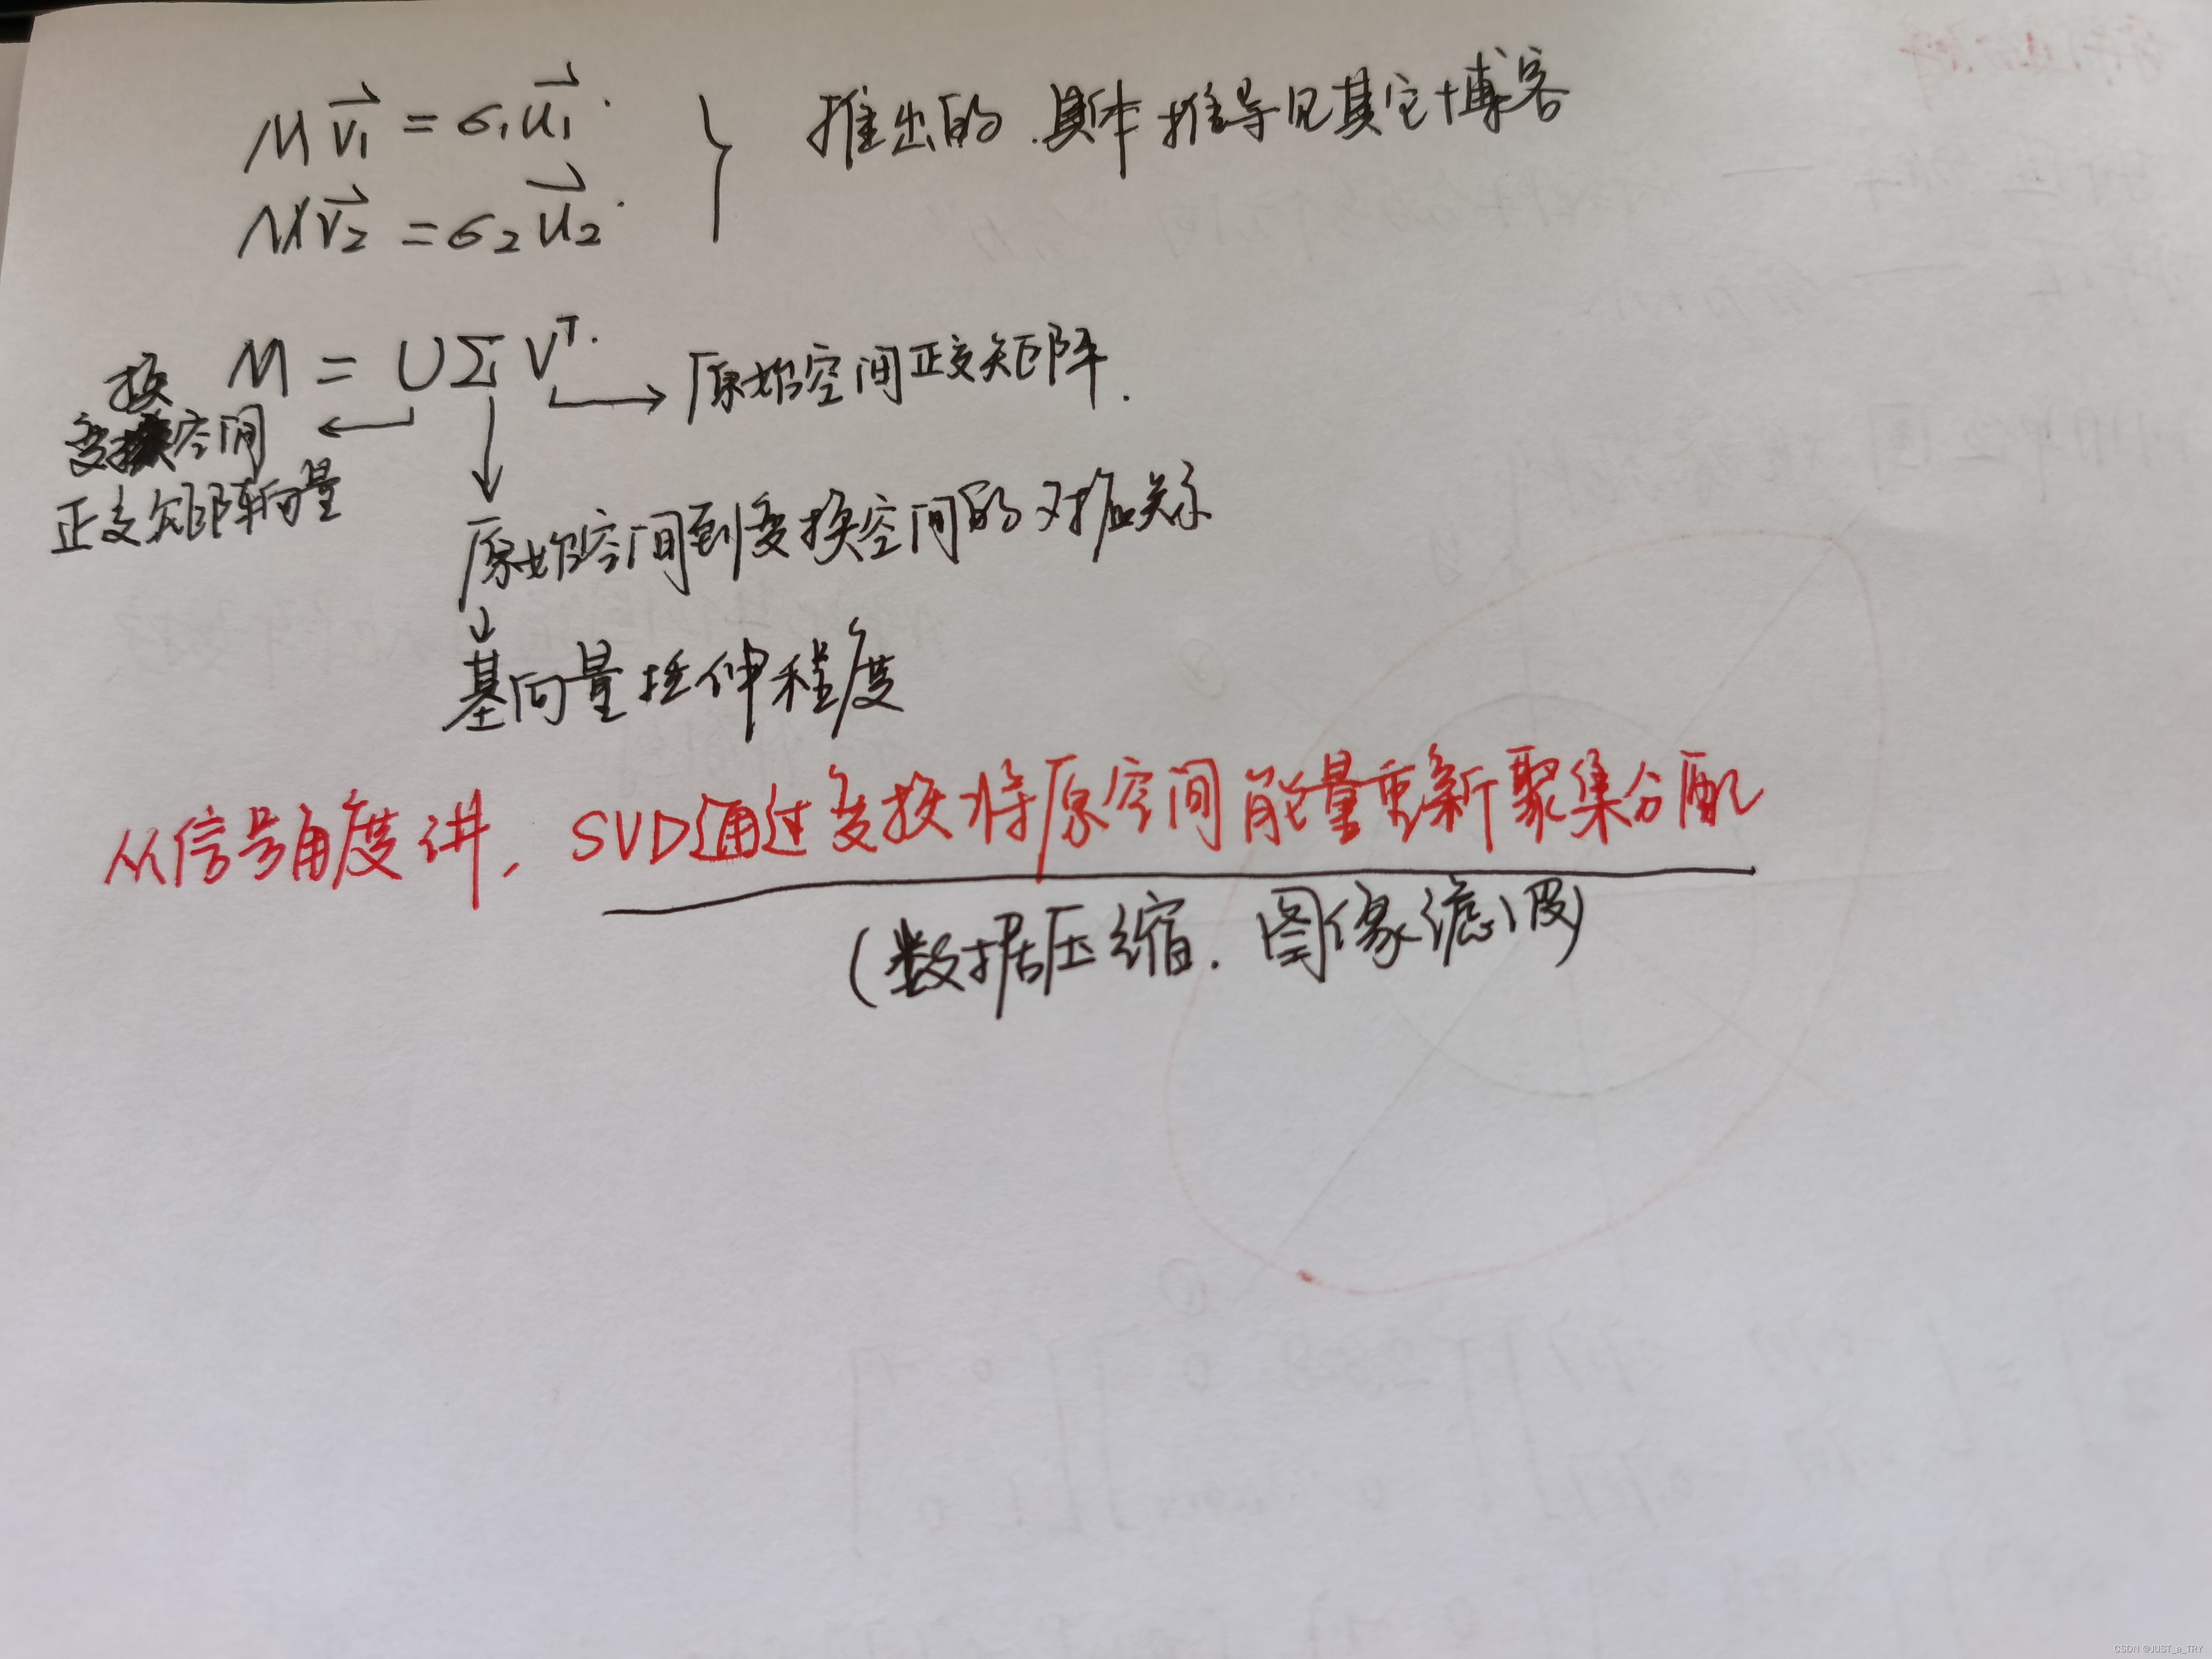 M v₁ = σ₁ u₁ } 推出的.具体推导见其它博客
M v₂ = σ₂ u₂
M = U Σ Vᵀ. → 原始空间正交矩阵.
换
变空间
正交矩阵向量
原始空间到变换空间的对应关系
基向量拉伸程度
从信号角度讲, SVD通过变换将原空间能量重新聚集分配
(数据压缩. 图像滤波)
CSDN @JUST_a_TRY